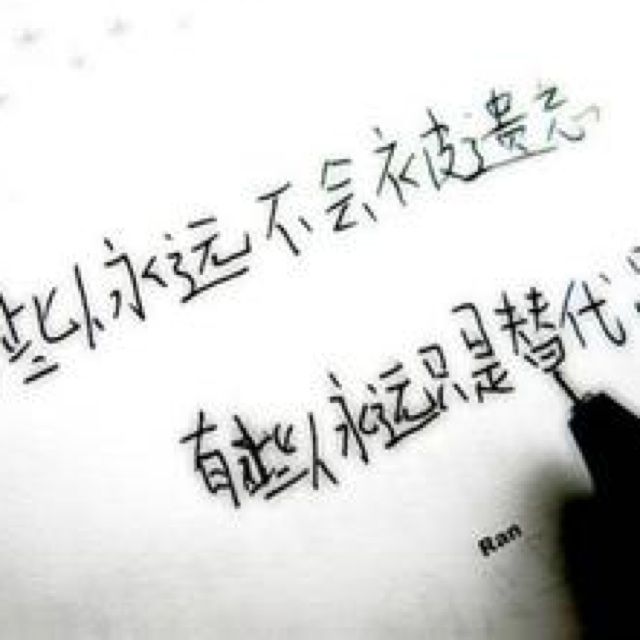 些人永远不会被遗忘
有些人永远只是替代
Ran